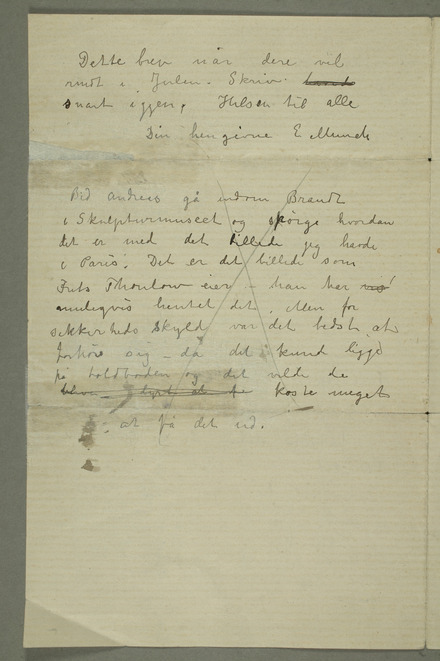 Dette brev når dere vel
rundt i Julen. Skriv
snart igjen, Hilsen til alle
Din hengivne E Munch
Bed Andreas gå indom Brandt
i Skulpturmuseet og spørge hvordan
det er med det billede jeg havde
i Paris. Det er det billede som
Frits Thaulow eier – han har
muligvis hentet det. Men for
sikkerheds skyld var det bedst at
forhøre sig – da det kund ligge
på toldboden og det vilde de
koste meget
at få det ud.